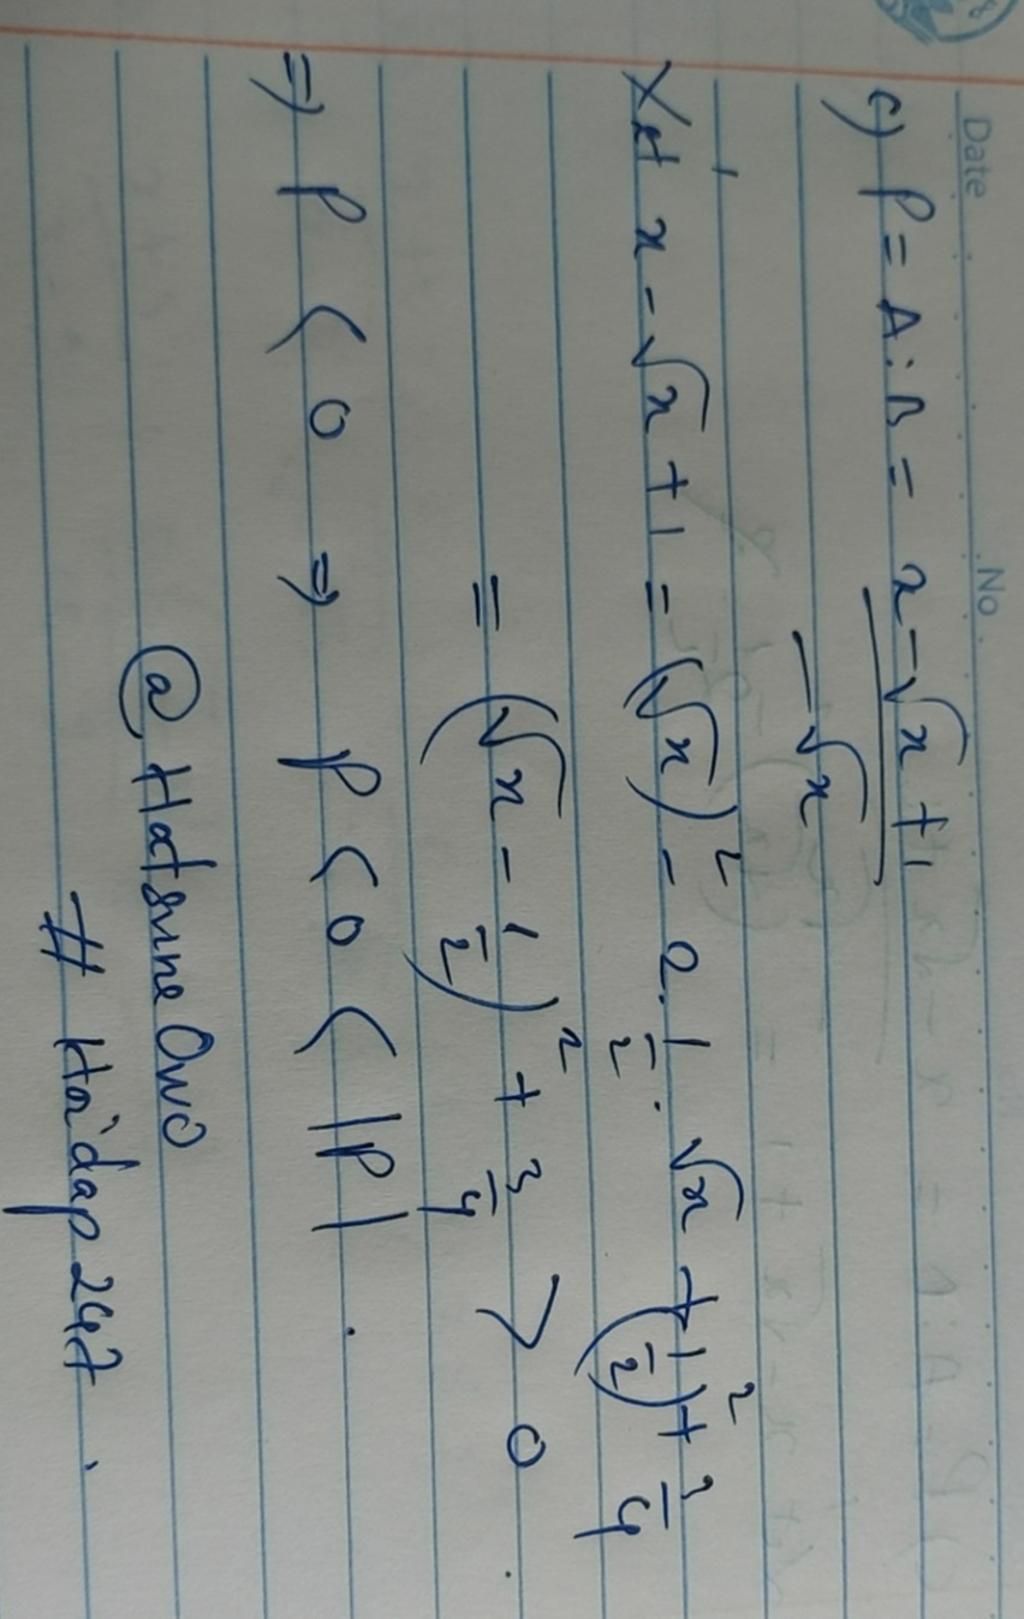 Date No.
c) P = A : B = \frac{x - \sqrt{x} + 1}{-\sqrt{x}}
Xét x - \sqrt{x} + 1 = (\sqrt{x})^2 - 2 . \frac{1}{2} . \sqrt{x} + (\frac{1}{2})^2 + \frac{3}{4}
= (\sqrt{x} - \frac{1}{2})^2 + \frac{3}{4} > 0 .
⇒ P < 0 ⇒ P < 0 < |P| .
@ HatsuneOwO
# Hỏi đáp 247 .